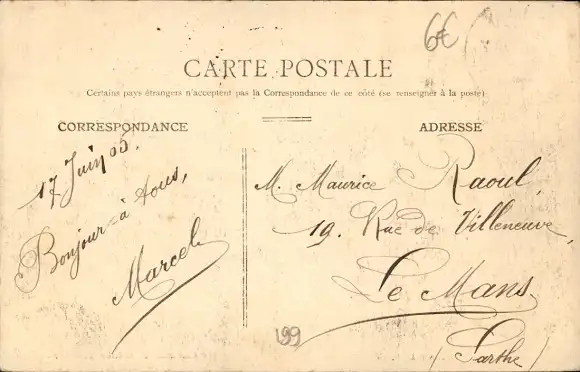 6€
CARTE POSTALE
Certains pays étrangers n'acceptent pas la Correspondance de ce côté (se renseigner à la poste)
CORRESPONDANCE
17 Juin 05.
Bonjour à tous,
Marcel
ADRESSE
M. Maurice Raoul,
19. Rue de Villeneuve,
Le Mans
(Sarthe)
199